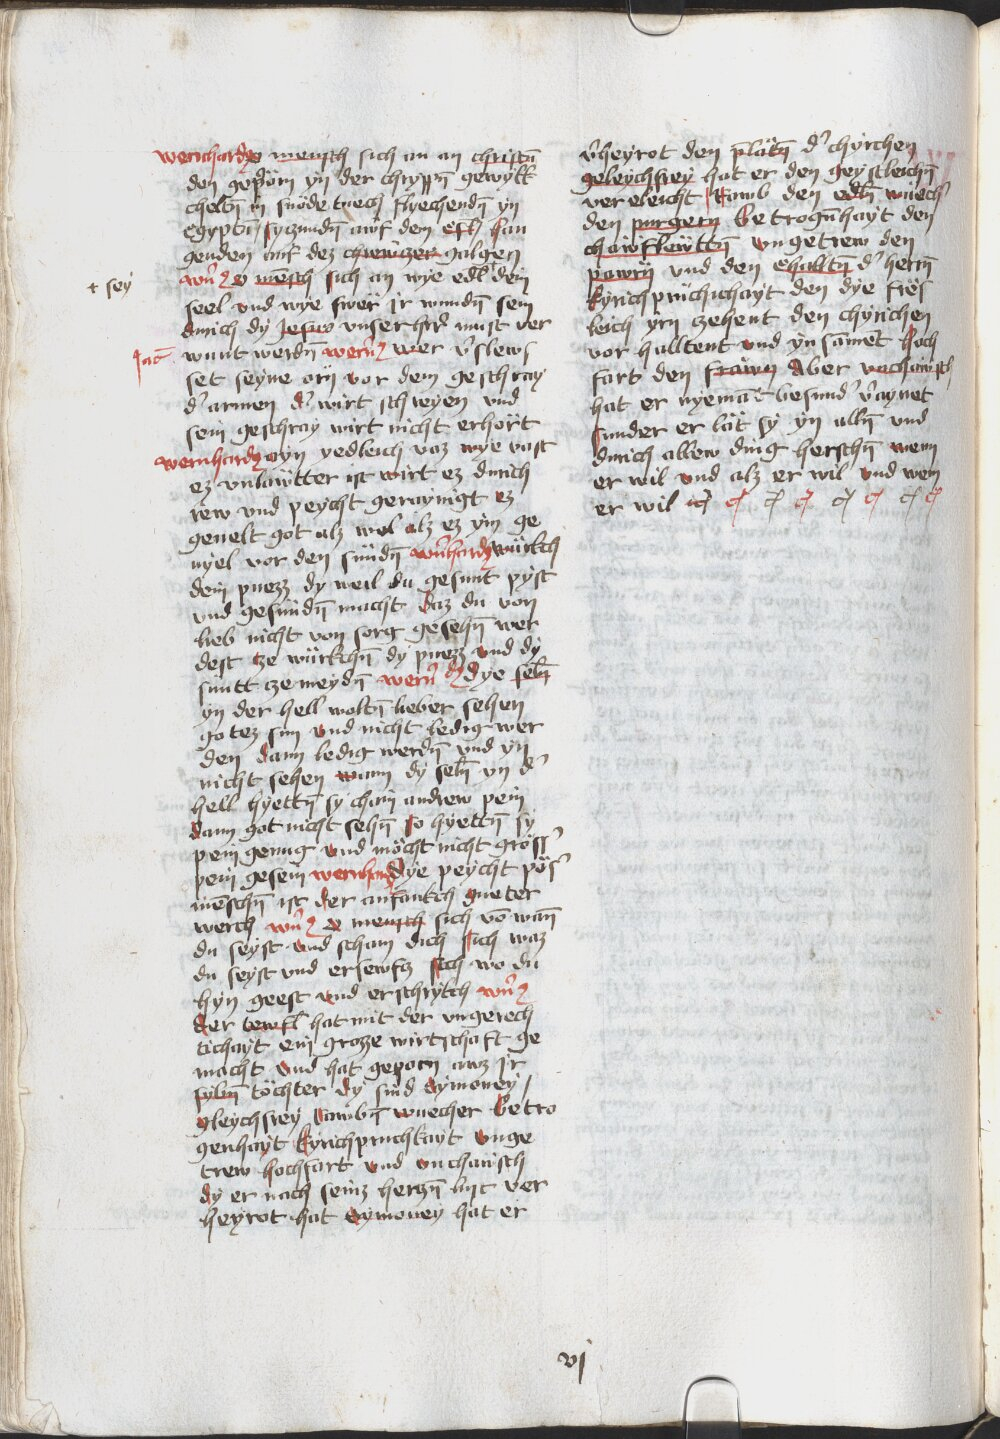 wernhardꝰ o mensch sich an an christū
den geporn yn der chrypp̄n gewykk
cheltn̄ in snöde tuech fliechendn̄ yn
egyptn̄ syczundn̄ awf dem esl han
genden auf dez chrewczes galgen
wn̄ꝛ o mēsch sich an wye edl dein
+ sey
seel und wye swer ir wundn̄ sein
durich dy Jesus unser hr̄r must ver
Jac̄
wunt werdn̄ wern̄ꝛ wer v̓slews
set seyne orn vor dem geschray
d̓ armen d̓ wirt schreyen und
sein geschray wirt nicht erhört
wernhardꝰ ayn yedleich vaz wye vast
ez unlawtter ist wirt ez durich
rew und peycht geraynigt ez
geuelt got alz wol alz ez ym ge
uyel vor den sündn̄ wn̄hardꝰ würkch
dein puezz dy weil du gesunt pyst
und gesundn̄ macht daz du von
lieb nicht von sorg gesehn̄ wer
dest ze würkchn̄ dy puezz und dy
sunt ze meydn̄ wern̄ꝛ dye seln̄
yn der hell woltn̄ lieber sehen
gotez sun und nicht ledig wer
den dann ledig werdn̄ und yn
nicht sehen wann dy seln̄ yn d̓
hell hyettn̄ sy chain andrew pein
dann got nicht sehn̄ so hyettn̄ sy
pein genug und möcht nicht gröss̓
pein gesein wernhardꝰ dye peycht pös̓
menschn̄ ist der anfankch gueter
werch wn̄ꝛ o mensch sich vō wan̄
du seyst und scham dich sich waz
du seyst und ersewfcz sich wo du
hyn geest und erschrykch wn̄ꝛ
der tewfl hat mit der ungerech
tichayt ein grozze wirtschaft ge
macht und hat geporn awz ir
sybn̄ töchter dy sind symoney
gleychsney rawbn̄ wuecher betro
genhayt kyrichpruchkayt unge
trew hochfart und unchawsch
dy er nach seinz herczn̄ lust ver
heyrot hat symoney hat er
v̓heyrot den p̄latn̄ d̓ chyrchen
geleychsney hat er den geystleichn̄
vereleicht rawb den edln̄ wuech̓
den purgern betrogn̄hayt den
chawflewttn̄ ungetrew den
pawrn̄ und den ehalltn̄ d̓ herrn̄
kyrichpruchichayt den dye fres
leich yrn zehent den chyrichen
vor halltent und yn samet hoch
fart den frawn Aber unchawsch
hat er nyemāt besund̓ v̓aynet
sunder er lät sy yn alln̄ und
durich allew ding herschn̄ wenn
er wil und alz er wil und wem
er wil
vj